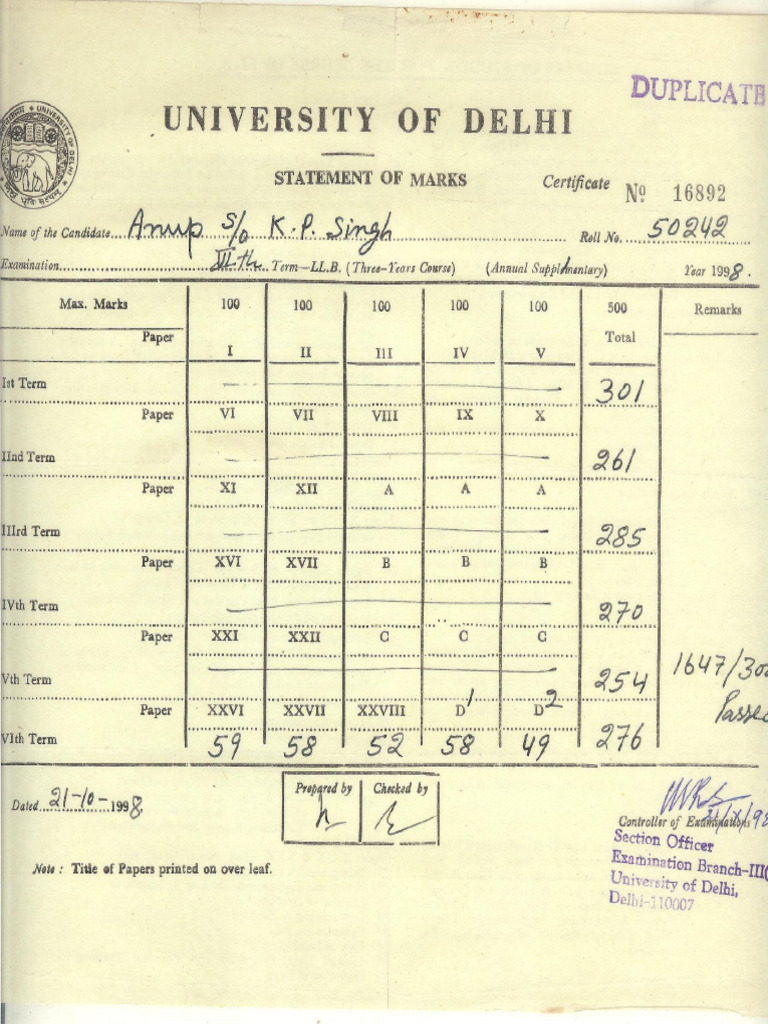 DUPLICATE
UNIVERSITY OF DELHI
STATEMENT OF MARKS
Certificate No 16892
Name of the Candidate Anup S/o K.P. Singh Roll No. 50242
Examination VIth Term—LL.B. (Three-Years Course) (Annual Supplimentary) Year 1998.
Max. Marks 100 100 100 100 100 500 Remarks
Paper I II III IV V Total
Ist Term 301
Paper VI VII VIII IX X
IInd Term 261
Paper XI XII A A A
IIIrd Term 285
Paper XVI XVII B B B
IVth Term 270
Paper XXI XXII C C C
Vth Term 254 1647/300
Paper XXVI XXVII XXVIII D1 D2 Passed
VIth Term 59 58 52 58 49 276
Dated 21-10-1998
Prepared by Checked by
Controller of Examinations 21/X/98
Section Officer
Examination Branch-III(
University of Delhi,
Delhi-110007
Note : Title of Papers printed on over leaf.